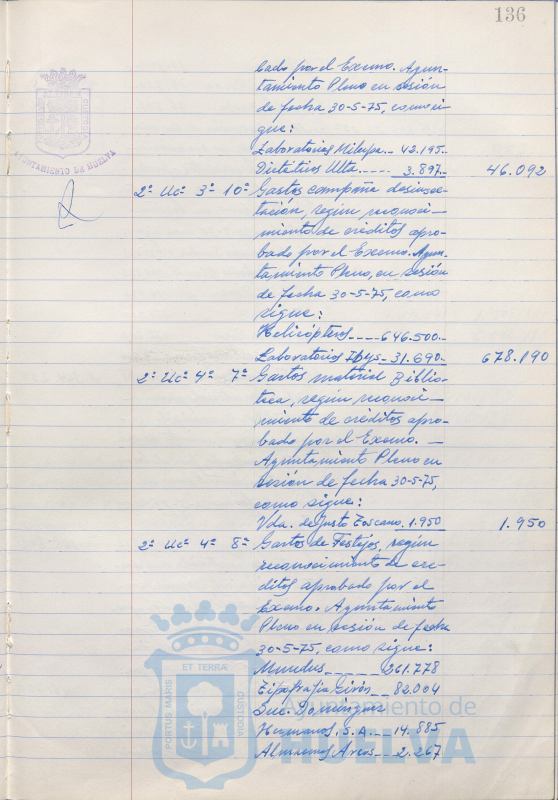 136
bado por el Excmo. Ayun-
tamiento Pleno en sesión
de fecha 30-5-75, como si-
gue:
Laboratorios Milupa.. 42.195..
Dietéticos Ulta.... 3.897.- 46.092
AYUNTAMIENTO DE HUELVA
2º Uc. 3º 10º Gastos campaña desinsec-
tación, según reconoci-
miento de créditos apro-
bado por el Excmo. Ayun-
tamiento Pleno, en sesión
de fecha 30-5-75, como
sigue:
Helicópteros ---- 646.500.-
Laboratorios Ibys - 31.690.- 678.190
2º Uc. 4º 7º Gastos material Biblio-
teca, según reconoci-
miento de créditos apro-
bado por el Excmo. —
Ayuntamiento Pleno en
sesión de fecha 30-5-75,
como sigue:
Vda. de Justo Toscano. 1.950 1.950
2º Uc. 4º 8º Gastos de Festejos, según
reconocimiento de cré-
ditos aprobado por el
Excmo. Ayuntamiento
Pleno en sesión de fecha
30-5-75, como sigue:
Mundus ----- 261.778
Tipografía Girón -- 82.004
Suc. Domínguez
Hermanos, S.A. -- 14.885
Almacenes Arcos -- 2.267
PORTUS MARIS ET TERRÆ CUSTODIA
Ayuntamiento de
HUELVA